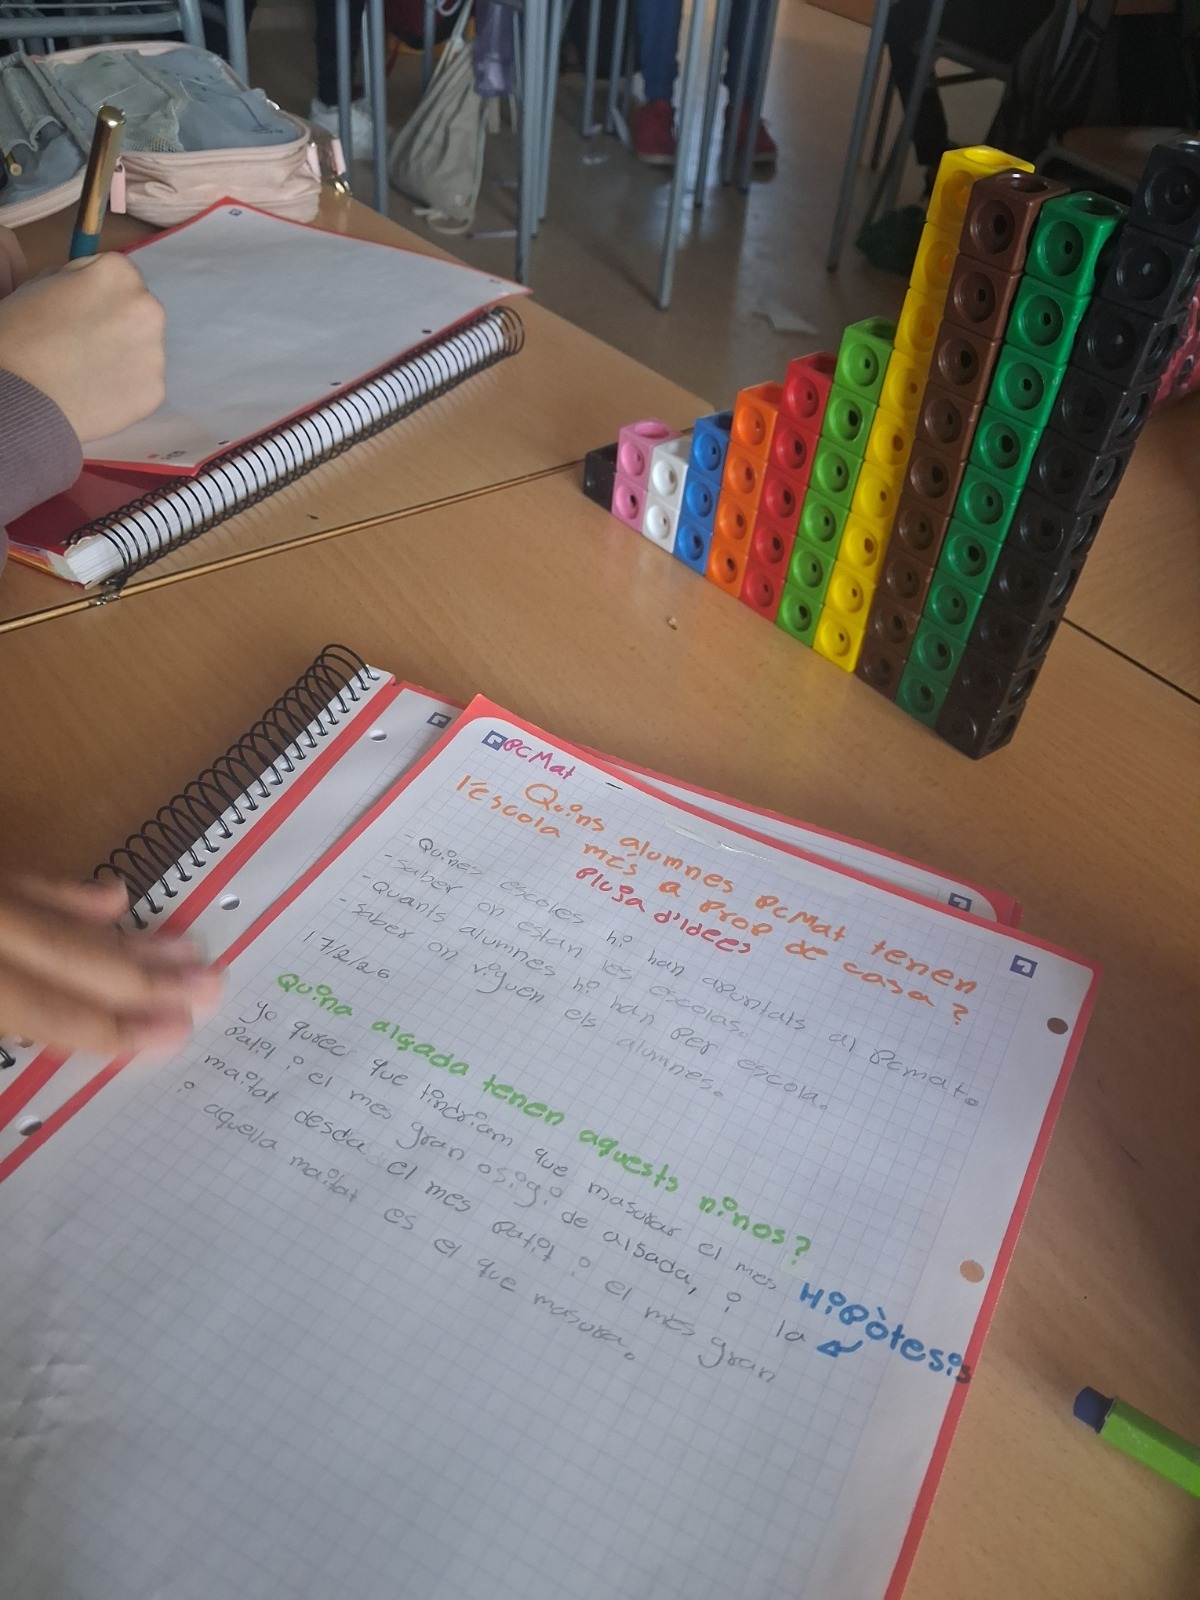 PCMat -
Quins alumnes PCMat tenen
l'escola més a prop de casa?
Pluja d'idees
- Quines escoles hi han apuntats al Pcmat.
- saber on estan les escolas.
- Quants alumnes hi han per escola.
- saber on viguen els alumnes.
17/2/26
Quina alçada tenen aquests ninos?
yo que que tindriam que masurar el mes
Patit i el mes gran osigi de alsada, i la
maitat desda el mes patit i el mes gran
i aquella maitat es el que masura.
Hipòtesis